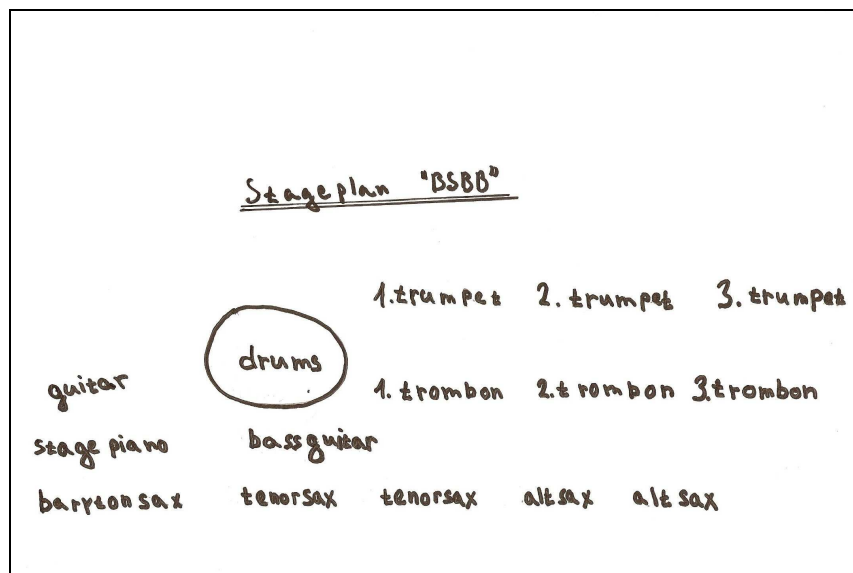 Stageplan "BSBB"
1. trumpet 2. trumpet 3. trumpet
drums
guitar 1. trombon 2. trombon 3. trombon
stage piano bassguitar
barytonsax tenorsax tenorsax altsax altsax